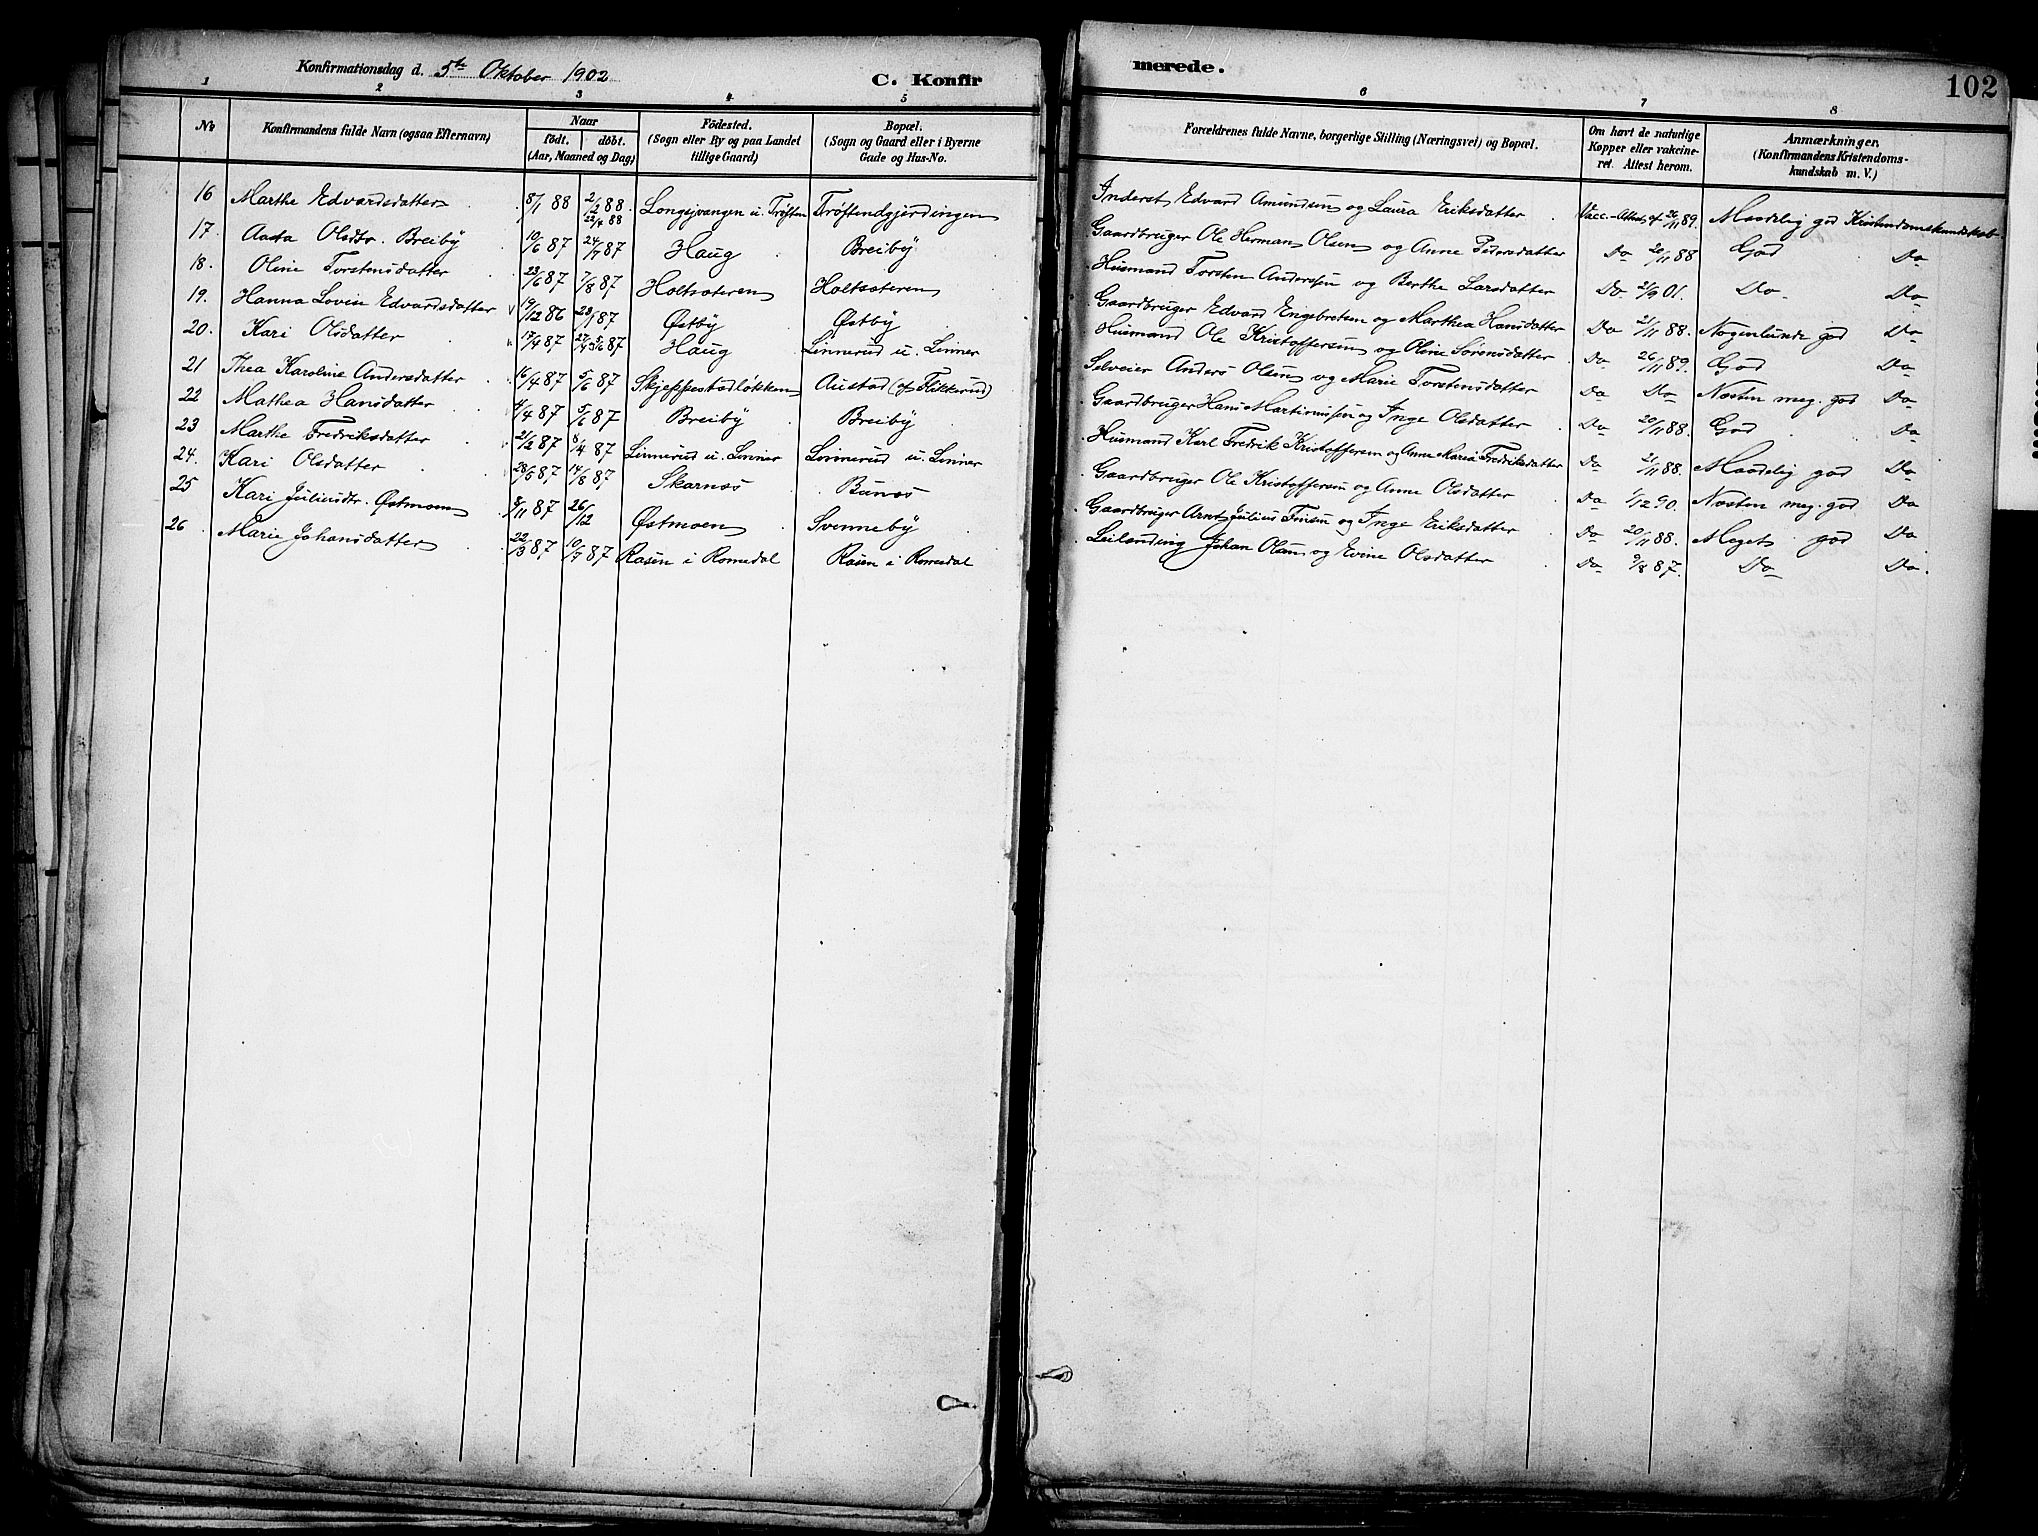 Konfirmationsdag d. 5te Oktober 1902 C. Konfir merede. 102
1 2 3 4 5 6 7 8
No Konfirmandens fulde Navn (ogsaa Efternavn) Naar født. døbt. (Aar, Maaned og Dag) Fødested. (Sogn eller By og paa Landet tillige Gaard) Bopæl. (Sogn og Gaard eller i Byerne Gade og Hus-No. Forældrenes fulde Navne, borgerlige Stilling (Næringsvei) og Bopæl. Om havt de naturlige Kopper eller vakcineret. Attest herom. Anmærkninger. (Konfirmandens Kristendomskundskab m. V.)
16 Marthe Edvardsdatter 8/1 88 2/2 88. 22/4 88 Longejvangen u. Trøften Trøftendgjerdingen Inderst Edvard Amundsen og Laura Eriksdatter Vacc.-Attest af 20/11 89. Maadelig god Kristendomskundskab
17. Aasta Olsdtr. Breiby 10/6 87 24/7 87 Haug Breiby Gaardbruger Ole Herman Olsen og Anne Pedersdatter Do 20/11 88 God Do
18. Oline Torstensdatter 23/6 87 7/8 87 Holtsæteren Holtsæteren Husmand Torsten Andersen og Berthe Larsdatter Do 2/9 01. Do Do
19. Hanna Lovise Edvardsdatter 19/12 86 23/1 87 Østby Østby Gaardbruger Edvard Engebretsen og Marthea Hansdatter Do 21/11 88. Nogenlunde god Do
20. Kari Olsdatter 17/4 87 27/4 5/6 87 Haug Linnerud u. Linner Husmand Ole Kristoffersen og Oline Sørensdatter Do 26/11 89. God Do
21 Thea Karoline Andersdatter 16/4 87 5/6 87 Skjeppestadløkken Austad (af Flikkerud) Selveier Anders Olsen og Marie Torstensdatter Do Do Næsten meg. god Do
22 Mathea Hansdatter 4/4 87 5/6 87 Breiby Breiby Gaardbruger Hans Martinussen og Inge Olsdatter Do 20/11 88. God Do
23 Marthe Fredriksdatter 21/2 87 8/4 87 Linnerud u. Linner Linnerud u. Linner Husmand Karl Fredrik Kristoffersen og Anne Maria Fredriksdatter Do 21/11 88. Maadelig god Do
24. Kari Olsdatter 28/5 87 14/8 87 Skarnæs Bunæs Gaardbruger Ole Kristoffersen og Anne Olsdatter Do 1/12 90. Næsten meg. god Do
25 Kari Juliusdtr. Østmoen 8/11 87 26/12 Østmoen Svenneby Gaardbruger Arnt Julius Finsen og Inge Eriksdatter Do 20/11 88. Meget god Do
26. Marie Johansdatter 22/3 87 10/7 87 Rasen i Romedal Rasen i Romedal Leilending Johan Olsen og Evine Olsdatter Do 9/8 87. Do Do.